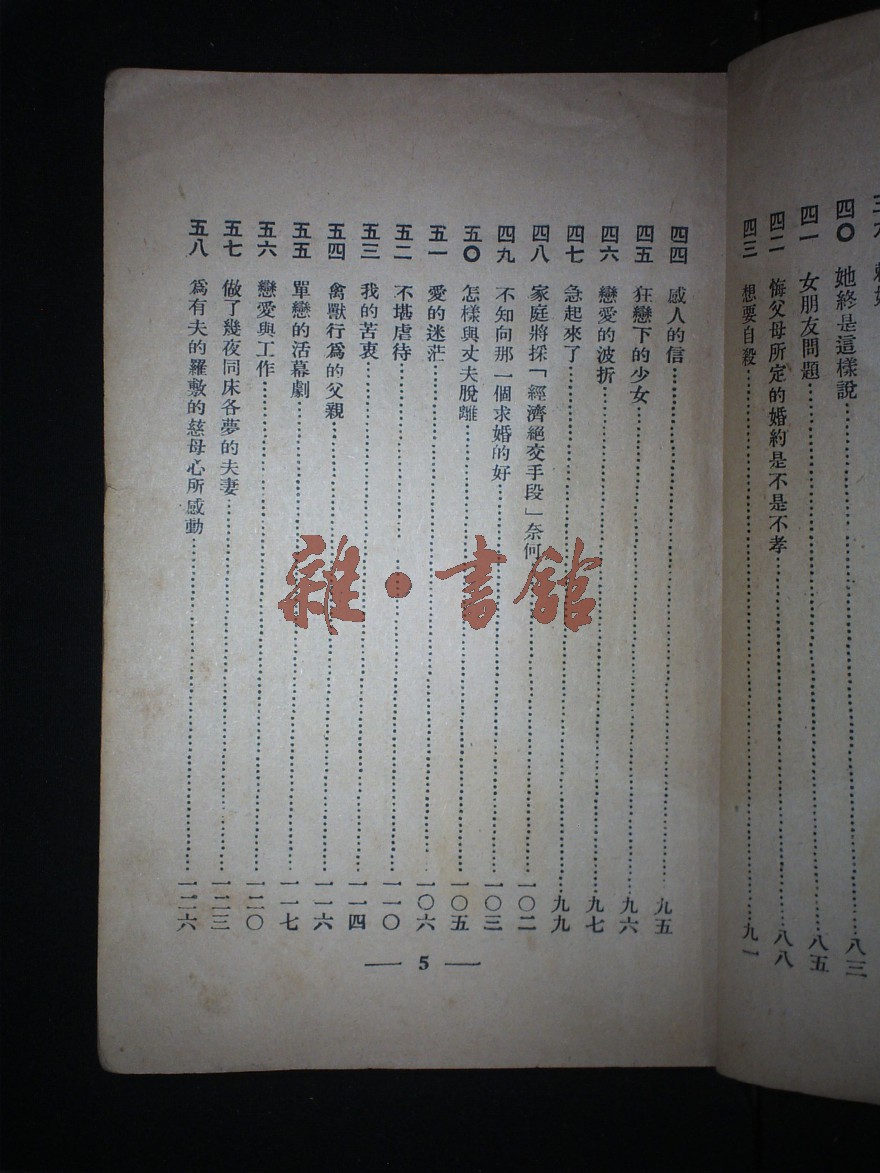 四〇 她終是這樣說……八三
四一 女朋友問題……八五
四二 悔父母所定的婚約是不是不孝……八八
四三 想要自殺……九一
四四 感人的信……九五
四五 狂戀下的少女……九六
四六 戀愛的波折……九七
四七 急起來了……九九
四八 家庭將採「經濟絕交手段」奈何……一〇二
四九 不知向那一個求婚的好……一〇三
五〇 怎樣與丈夫脫離……一〇五
五一 愛的迷茫……一〇六
五二 不堪虐待……一一〇
五三 我的苦衷……一一四
五四 禽獸行為的父親……一一六
五五 單戀的活幕劇……一一七
五六 戀愛與工作……一二〇
五七 做了幾夜同床各夢的夫妻……一二三
五八 為有夫的羅敷的慈母心所感動……一二六
— 5 —
雜·書館